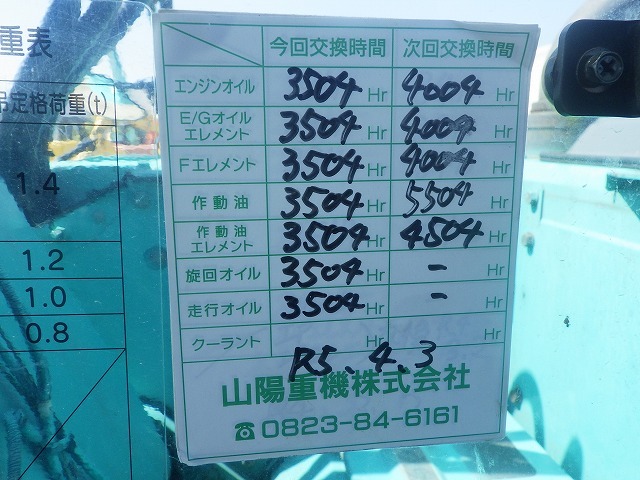 重表
吊定格荷重(t)
1.4
1.2
1.0
0.8
今回交換時間 次回交換時間
エンジンオイル 3504 Hr 4004 Hr
E/Gオイル
エレメント 3504 Hr 4004 Hr
Fエレメント 3504 Hr 4004 Hr
作動油 3504 Hr 5504 Hr
作動油
エレメント 3504 Hr 4504 Hr
旋回オイル 3504 Hr - Hr
走行オイル 3504 Hr - Hr
クーラント Hr Hr
R5.4.3
山陽重機株式会社
☎0823-84-6161